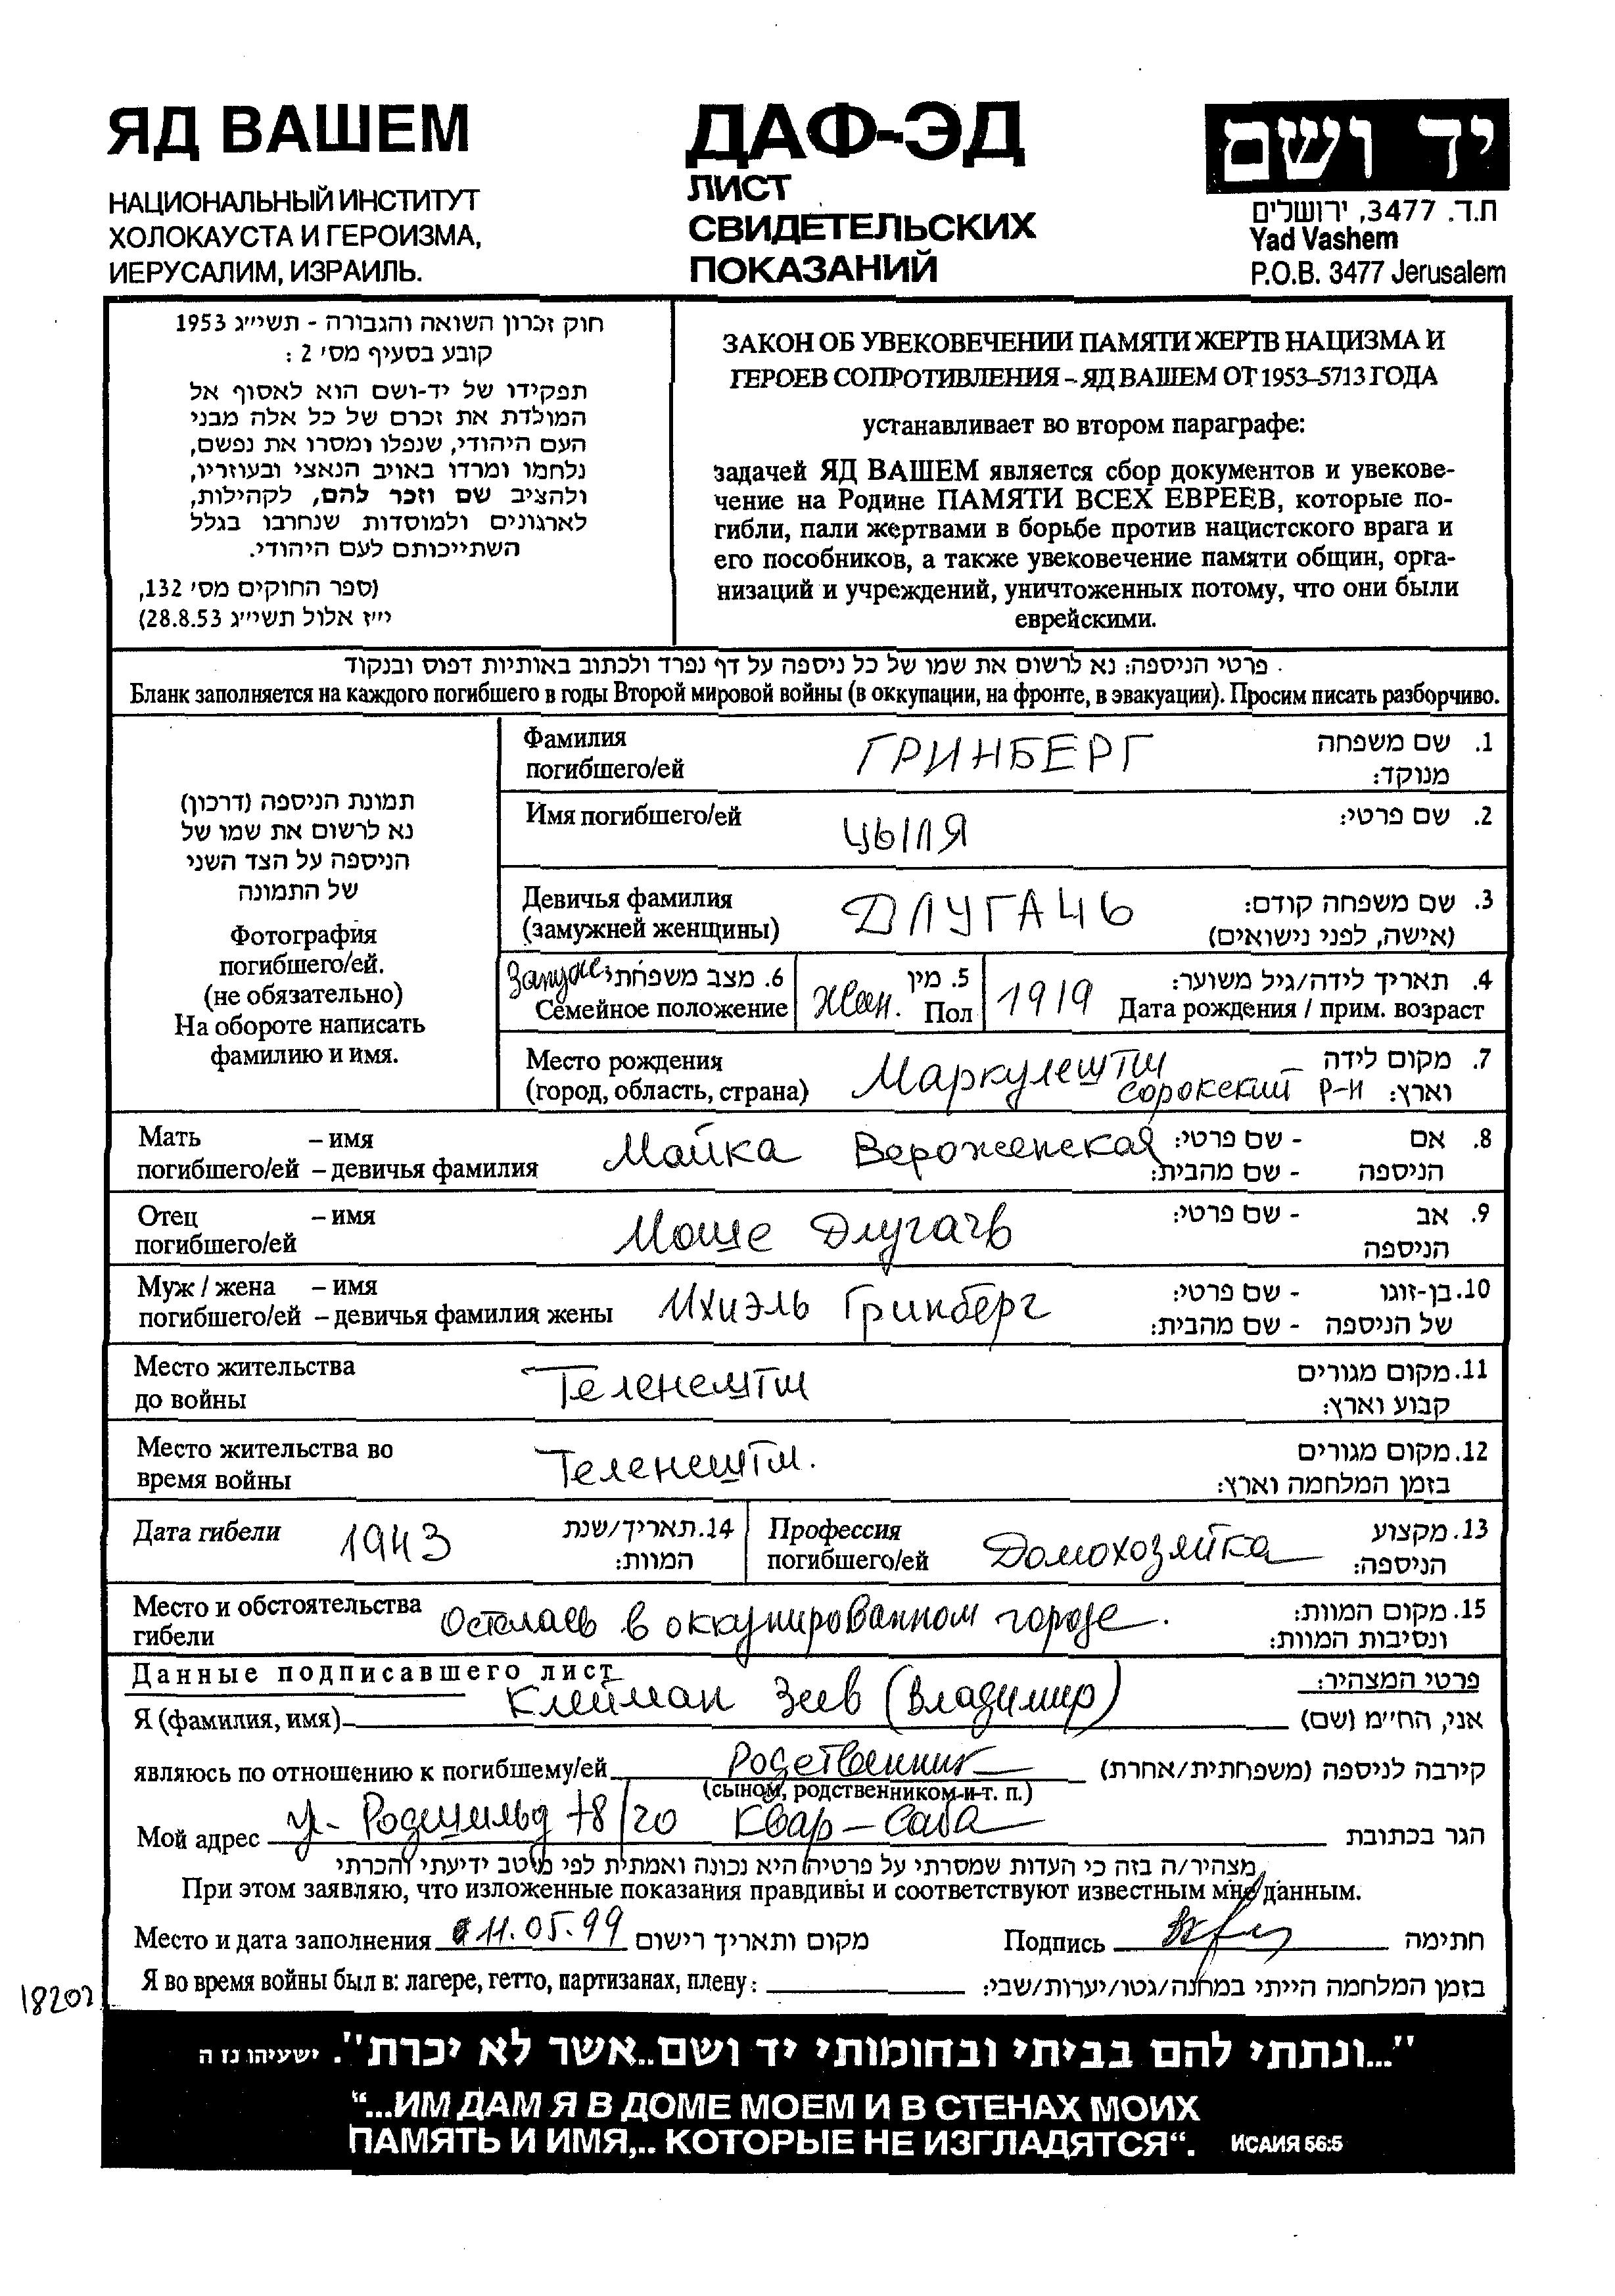 ЯД ВАШЕМ
НАЦИОНАЛЬНЫЙ ИНСТИТУТ
ХОЛОКАУСТА И ГЕРОИЗМА,
ИЕРУСАЛИМ, ИЗРАИЛЬ.
ДАФ-ЭД
ЛИСТ
СВИДЕТЕЛЬСКИХ
ПОКАЗАНИЙ
יד ושם
ת.ד. 3477, ירושלים
Yad Vashem
P.O.B. 3477 Jerusalem
חוק זכרון השואה והגבורה - תשי״ג 1953
קובע בסעיף מס׳ 2 :
תפקידו של יד-ושם הוא לאסוף אל
המולדת את זכרם של כל אלה מבני
העם היהודי, שנפלו ומסרו את נפשם,
נלחמו ומרדו באויב הנאצי ובעוזריו,
ולהציב שם וזכר להם, לקהילות,
לארגונים ולמוסדות שנחרבו בגלל
השתייכותם לעם היהודי.
(ספר החוקים מס׳ 132,
י״ז אלול תשי״ג 28.8.53)
ЗАКОН ОБ УВЕКОВЕЧЕНИИ ПАМЯТИ ЖЕРТВ НАЦИЗМА И
ГЕРОЕВ СОПРОТИВЛЕНИЯ – ЯД ВАШЕМ ОТ 1953–5713 ГОДА
устанавливает во втором параграфе:
задачей ЯД ВАШЕМ является сбор документов и увекове-
чение на Родине ПАМЯТИ ВСЕХ ЕВРЕЕВ, которые по-
гибли, пали жертвами в борьбе против нацистского врага и
его пособников, а также увековечение памяти общин, орга-
низаций и учреждений, уничтоженных потому, что они были
еврейскими.
פרטי הניספה: נא לרשום את שמו של כל ניספה על דף נפרד ולכתוב באותיות דפוס ובנקוד.
Бланк заполняется на каждого погибшего в годы Второй мировой войны (в оккупации, на фронте, в эвакуации). Просим писать разборчиво.
תמונת הניספה (דרכון)
נא לרשום את שמו של
הניספה על הצד השני
של התמונה
Фотография
погибшего/ей.
(не обязательно)
На обороте написать
фамилию и имя.
Фамилия ГРИНБЕРГ 1. שם משפחה
погибшего/ей מנוקד:
Имя погибшего/ей ЦЫЛЯ 2. שם פרטי:
Девичья фамилия ДЛУГАЧЬ 3. שם משפחה קודם:
(замужней женщины) (אישה, לפני נישואים)
Замужем 6. מצב משפחתי: 5. מין 4. תאריך לידה/גיל משוער:
Семейное положение Жен. Пол 1919 Дата рождения / прим. возраст
Место рождения Маркулешти 7. מקום לידה
(город, область, страна) Сорокский Р-н וארץ:
Мать – имя Майка Вероженская - שם פרטי: 8. אם
погибшего/ей – девичья фамилия - שם מהבית: הניספה
Отец – имя Моше Длугачь - שם פרטי: 9. אב
погибшего/ей הניספה
Муж / жена – имя Ихиэль Гринберг - שם פרטי: 10. בן-זוגו
погибшего/ей – девичья фамилия жены - שם מהבית: של הניספה
Место жительства Теленешти 11. מקום מגורים
до войны קבוע וארץ:
Место жительства во Теленешти. 12. מקום מגורים
время войны בזמן המלחמה וארץ:
Дата гибели 1943 14. תאריך/שנת המוות:
Профессия Домохозяйка 13. מקצוע
погибшего/ей הניספה:
Место и обстоятельства Осталась в оккупированном городе. 15. מקום המוות:
гибели ונסיבות המוות:
Данные подписавшего лист פרטי המצהיר:
Я (фамилия, имя) Клейман Зеев (Владимир) אני, הח״מ (שם)
являюсь по отношению к погибшему/ей Родственник קירבה לניספה (משפחתית/אחרת)
(сыном, родственником и т. п.)
Мой адрес ул- Родшильд 78/20 Квар-Саба הגר בכתובת
מצהיר/ה בזה כי העדות שמסרתי על פרטיה היא נכונה ואמתית לפי מיטב ידיעתי והכרתי
При этом заявляю, что изложенные показания правдивы и соответствуют известным мне данным.
Место и дата заполнения 11.05.99 מקום ותאריך רישום Подпись חתימה
Я во время войны был в: лагере, гетто, партизанах, плену: בזמן המלחמה הייתי במחנה/גטו/יערות/שבי:
18202
"...ונתתי להם בביתי ובחומותי יד ושם..אשר לא יכרת". ישעיהו נז ה
“...ИМ ДАМ Я В ДОМЕ МОЕМ И В СТЕНАХ МОИХ
ПАМЯТЬ И ИМЯ,.. КОТОРЫЕ НЕ ИЗГЛАДЯТСЯ“. ИСАИЯ 56:5